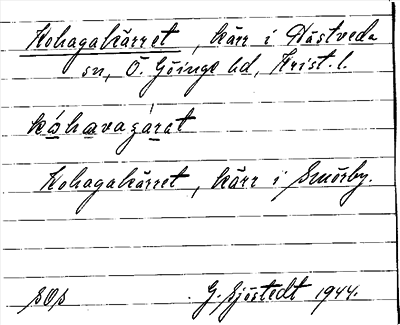 Kohagakärret, kärr i Hästveda
sn, Ö. Göinge hd, Krist. l.
kóhavagárat
Kohagakärret, kärr i Smörby.
sOs G. Sjöstedt 1944.